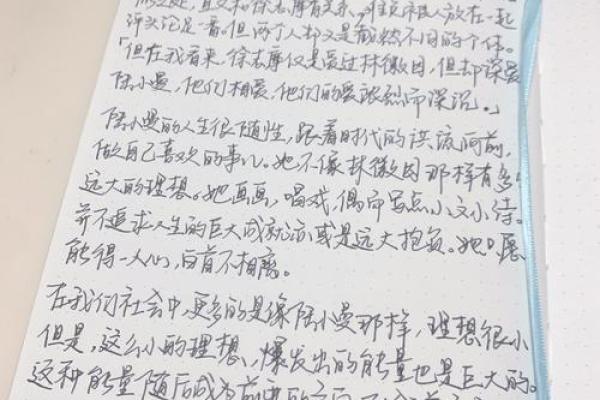 且又和徐志摩有关系,难免被人放在一起
评头论足一番。但两个人却又是截然不同的个体。
「但在我看来,徐志摩仅是爱过林徽因,但却深爱
陆小曼,他们相爱,他们的爱浓烈而深沉。」
陆小曼的人生很随性,跟着时代的洪流向前,
做自己喜欢的事儿。她不像林徽因那样有多么
远大的理想。她画画,唱戏,偶而写点小文小诗。
并不追求人生的巨大成就亦或是远大抱负。她只愿
能得一人心,白首不相离。
在我们社会中,更多的是像陆小曼那样,理想很小
但是,这么小的理想,爆发出的能量也是巨大的。
这种能量随后成为前进的